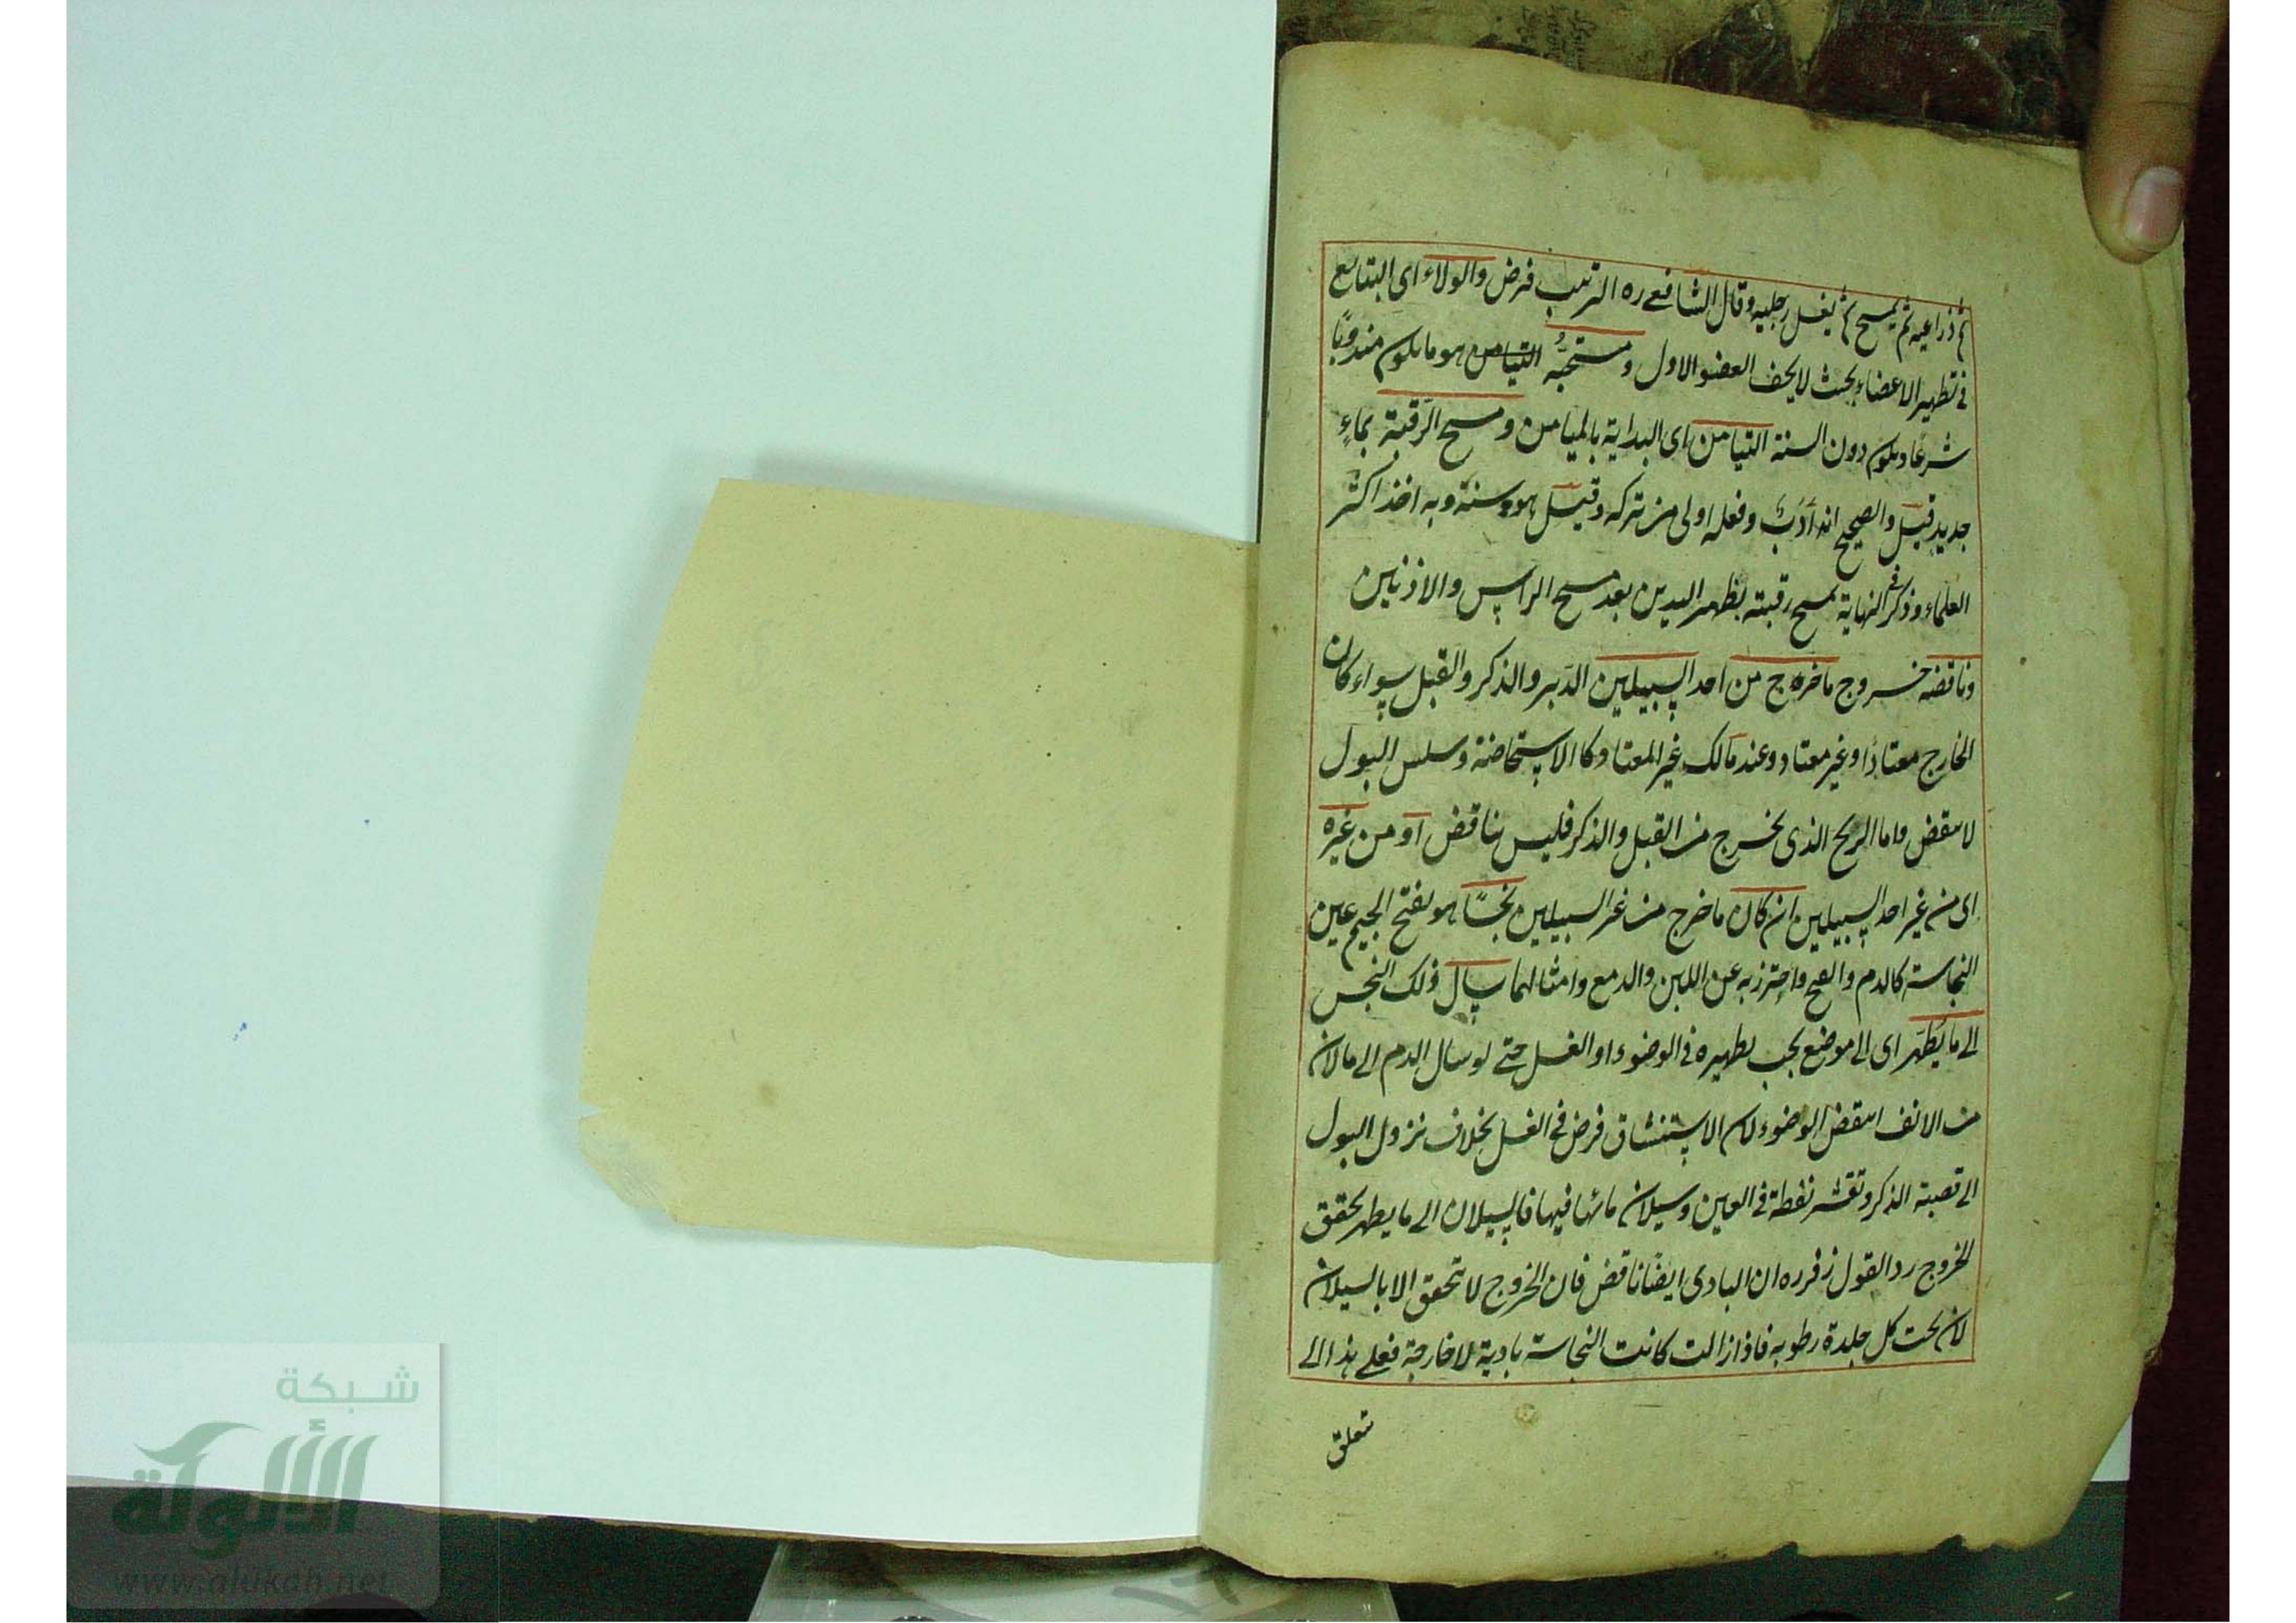 ثم ذراعيه ثم يمسح ثم يغسل رجليه وقال الشافعى ره الترتيب فرض والولاء اى التتابع
فى تطهير الاعضاء بحيث لا يجف العضو الاول ومستحبه التيامن هو ما يكون مندوبًا
شرعًا ويكون دون السنة التيامن اى البداية بالميامن ومسح الرقبة بماءٍ
جديد قيل والصحيح انه أدَبٌ وفعله اولى من تركه وقيل هو سنة وبه اخذ اكثر
العلماء وذكر فى النهاية يمسح رقبته بظهر اليدين بعد مسح الراس والاذنين
وناقضه خروج ما خرج من احد السبيلين الدبر والذكر والقبل سواء كان
الخارج معتادًا او غير معتاد وعند مالك غير المعتاد كالاستحاضة وسلس البول
لا ينقض واما الريح الذى يخرج من القبل والذكر فليس بناقض او من غيره
اى من غير احد السبيلين ان كان ما خرج من غير السبيلين نجسًا هو بفتح الجيم عين
النجاسة كالدم والقيح واحترز به عن اللبن والدمع وامثالهما سال ذلك النجس
الى ما يُطَهر اى الى موضع يجب تطهيره فى الوضوء او الغسل حتى لو سال الدم الى ما لان
من الانف انتقض الوضوء لان الاستنشاق فرض فى الغسل بخلاف نزول البول
الى قصبة الذكر وتقشر نفطة فى العين وسيلان مائها فيها فالسيلان الى ما يطهر يحقق
الخروج رد القول زفر ره ان البادى ايضًا ناقض فان الخروج لا يتحقق الا بالسيلان
لان تحت كل جلدة رطوبه فاذا زالت كانت النجاسة بادية لا خارجة فعلى هذا الى
تعلق
شبكة
الألوكة
www.alukah.net